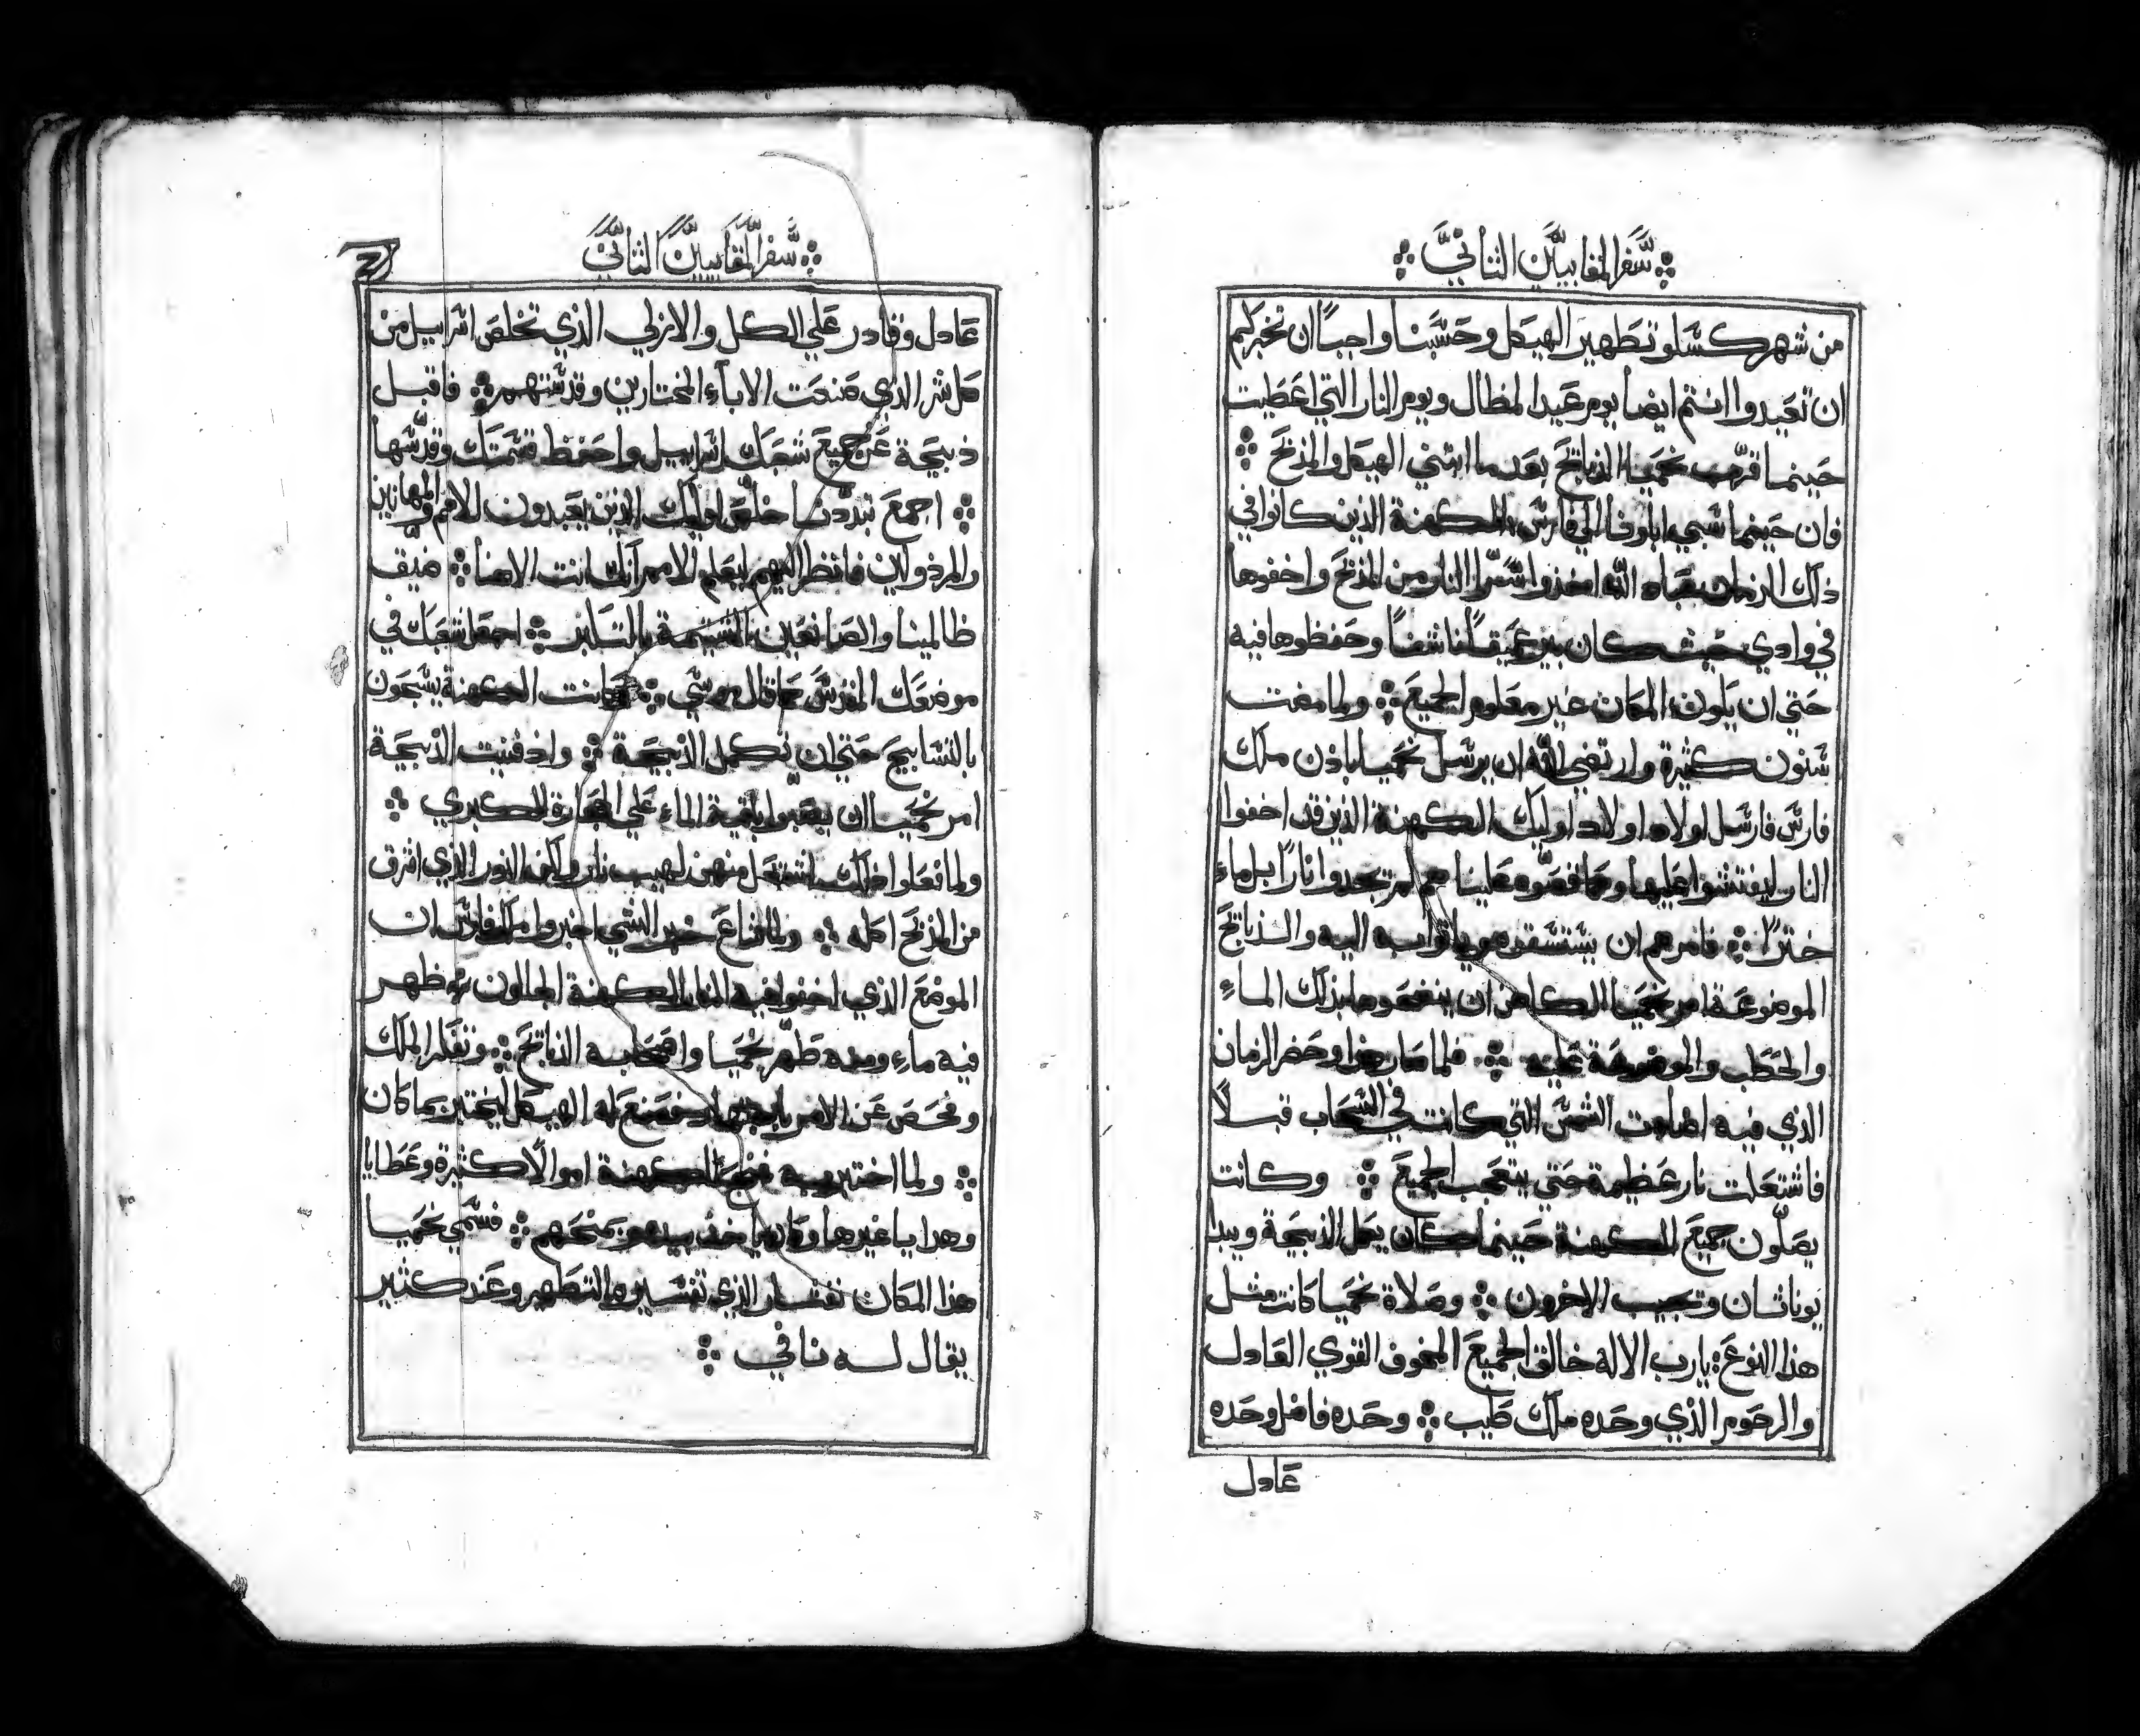 سفر المقابيين الثاني
من شهر كسلو تطهير الهيكل وحسبنا واجباً ان نخبركم
ان تعيدوا انتم ايضا يوم عيد المظال ويوم النار التي اعطيت
حينما قرب نحميا الذبايح بعد ما ابتني الهيكل والمذبح
فان حينما سبي اباونا الي فارس الكهنة الذين كانوا في
ذلك الزمان الله اخذوا سرًا النار من المذبح واخفوها
في وادي حيث كان بير عميقاً ناشفاً وحفظوها فيه
حتي ان يكون المكان غير معلوم الجميع ولما مضت
سنون كثيرة وارتضي الله ان يرسل نحميا باذن ملك
فارس فارسل اولاد اولاد اوليك الكهنة الذين قد اخفوا
النار ليفتشوا عليها وكما قصوه علينا هم لم يجدوا ناراً بل ماء
خترًا فامرهم ان يستسقوه وياتوا به اليه والذبايح
الموضوعة امر نحميا الكاهن ان ينضحوها بذلك الماءِ
والحطب والموضوعة عليه فلما صار هذا وحضر الزمان
الذي فيه اضاءت الشمس التي كانت في السحاب قبلاً
فاشتعلت نار عظيمة حتي يتعجب الجميع وكانت
يصلون جميع الكهنة حينما كان يكمل الذبيحة ويبدا
يوناثان وتجيب الاخرون وصلاة نحميا كانت مثل
هذا النوع يا رب الاله خالق الجميع المخوف القوي العادل
والرحوم الذي وحده ملك طيب وحده فاضل وحده
عادل
سفر المقابيين الثاني
عادل وقادر علي الكل والازلي الذي تخلص اسراييل من
كل شر الذي صنعت الاباء المختارين وقدستهم فاقبل
ذبيحة عن جميع شعبك اسراييل واحفظ قسمتك وقدسها
اجمع تبددنا خلص اوليك الذين يعبدون للامم والمهانين
والمرذولين فانظر اليهم ليعلم الامم انك انت الاهنا ضيق
ظالمينا والصانعين الشتيمة بالتكبر اجعل شعبك في
موضعك المقدس كما قال موسي وكانت الكهنة يسبحون
بالتسابيح حتي ان تكمل الذبيحة واذ فنيت الذبيحة
امر نحميا ان يصبوا بقية الماء علي الحجارة الكبري
ولما فعلوا ذلك اشتعل منهن لهيب نار ولكن النور الذي اشرق
من المذبح اكله ولما شاع خبر الشي اخبروا ملك فارس ان
الموضع الذي اخفوا فيه النار الكهنة الجالون ظهر
فيه ماء ومنه طهّر نحميا واصحابه الذبايح وتفكر الملك
وفحص عن الامر باجتهاد فصنع له الهيكل ليختبر بما كان
ولما اختبر به منح الكهنة اموالاً كثيرة وعطايا
وهدايا غيرها وكان ياخذ بيده ويمنحهم فسمي نحميا
هذا المكان نفتار الذي تفسيره التطهير وعند كثير
يقال له نافي